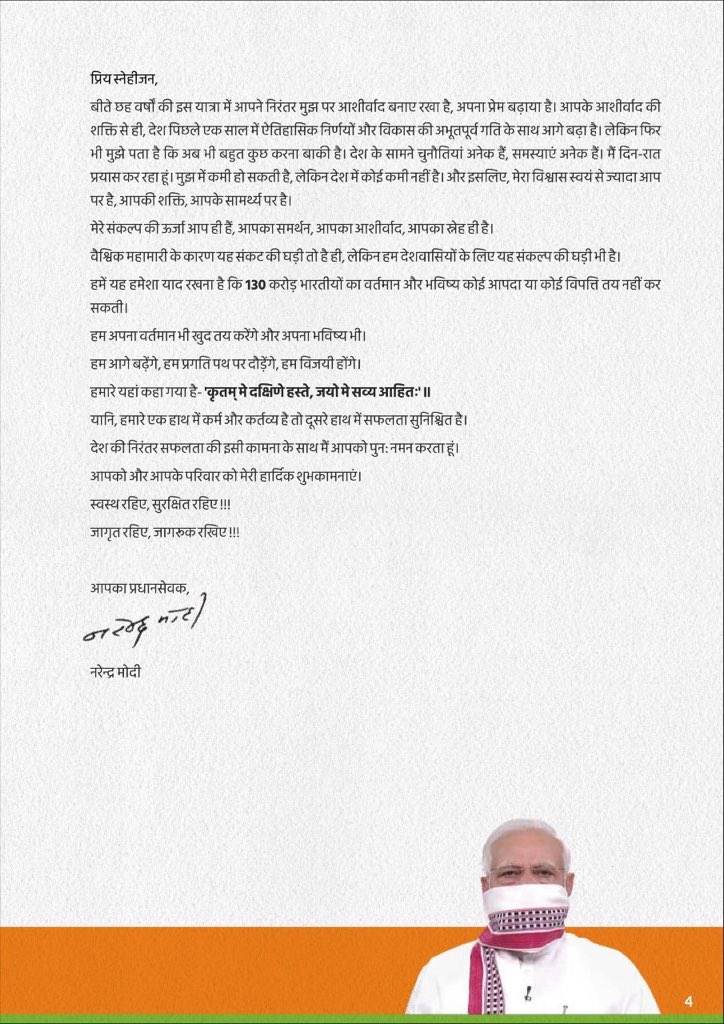 प्रिय स्नेहीजन,
बीते छह वर्षों की इस यात्रा में आपने निरंतर मुझ पर आशीर्वाद बनाए रखा है, अपना प्रेम बढ़ाया है। आपके आशीर्वाद की
शक्ति से ही, देश पिछले एक साल में ऐतिहासिक निर्णयों और विकास की अभूतपूर्व गति के साथ आगे बढ़ा है। लेकिन फिर
भी मुझे पता है कि अब भी बहुत कुछ करना बाकी है। देश के सामने चुनौतियां अनेक हैं, समस्याएं अनेक हैं। मैं दिन-रात
प्रयास कर रहा हूं। मुझ में कमी हो सकती है, लेकिन देश में कोई कमी नहीं है। और इसलिए, मेरा विश्वास स्वयं से ज्यादा आप
पर है, आपकी शक्ति, आपके सामर्थ्य पर है।
मेरे संकल्प की ऊर्जा आप ही हैं, आपका समर्थन, आपका आशीर्वाद, आपका स्नेह ही है।
वैश्विक महामारी के कारण यह संकट की घड़ी तो है ही, लेकिन हम देशवासियों के लिए यह संकल्प की घड़ी भी है।
हमें यह हमेशा याद रखना है कि 130 करोड़ भारतीयों का वर्तमान और भविष्य कोई आपदा या कोई विपत्ति तय नहीं कर
सकती।
हम अपना वर्तमान भी खुद तय करेंगे और अपना भविष्य भी।
हम आगे बढ़ेंगे, हम प्रगति पथ पर दौड़ेंगे, हम विजयी होंगे।
हमारे यहां कहा गया है- 'कृतम् मे दक्षिणे हस्ते, जयो मे सव्य आहितः'॥
यानि, हमारे एक हाथ में कर्म और कर्तव्य है तो दूसरे हाथ में सफलता सुनिश्चित है।
देश की निरंतर सफलता की इसी कामना के साथ मैं आपको पुन: नमन करता हूं।
आपको और आपके परिवार को मेरी हार्दिक शुभकामनाएं।
स्वस्थ रहिए, सुरक्षित रहिए !!!
जागृत रहिए, जागरूक रखिए !!!
आपका प्रधानसेवक,
नरेन्द्र मोदी
नरेन्द्र मोदी
4